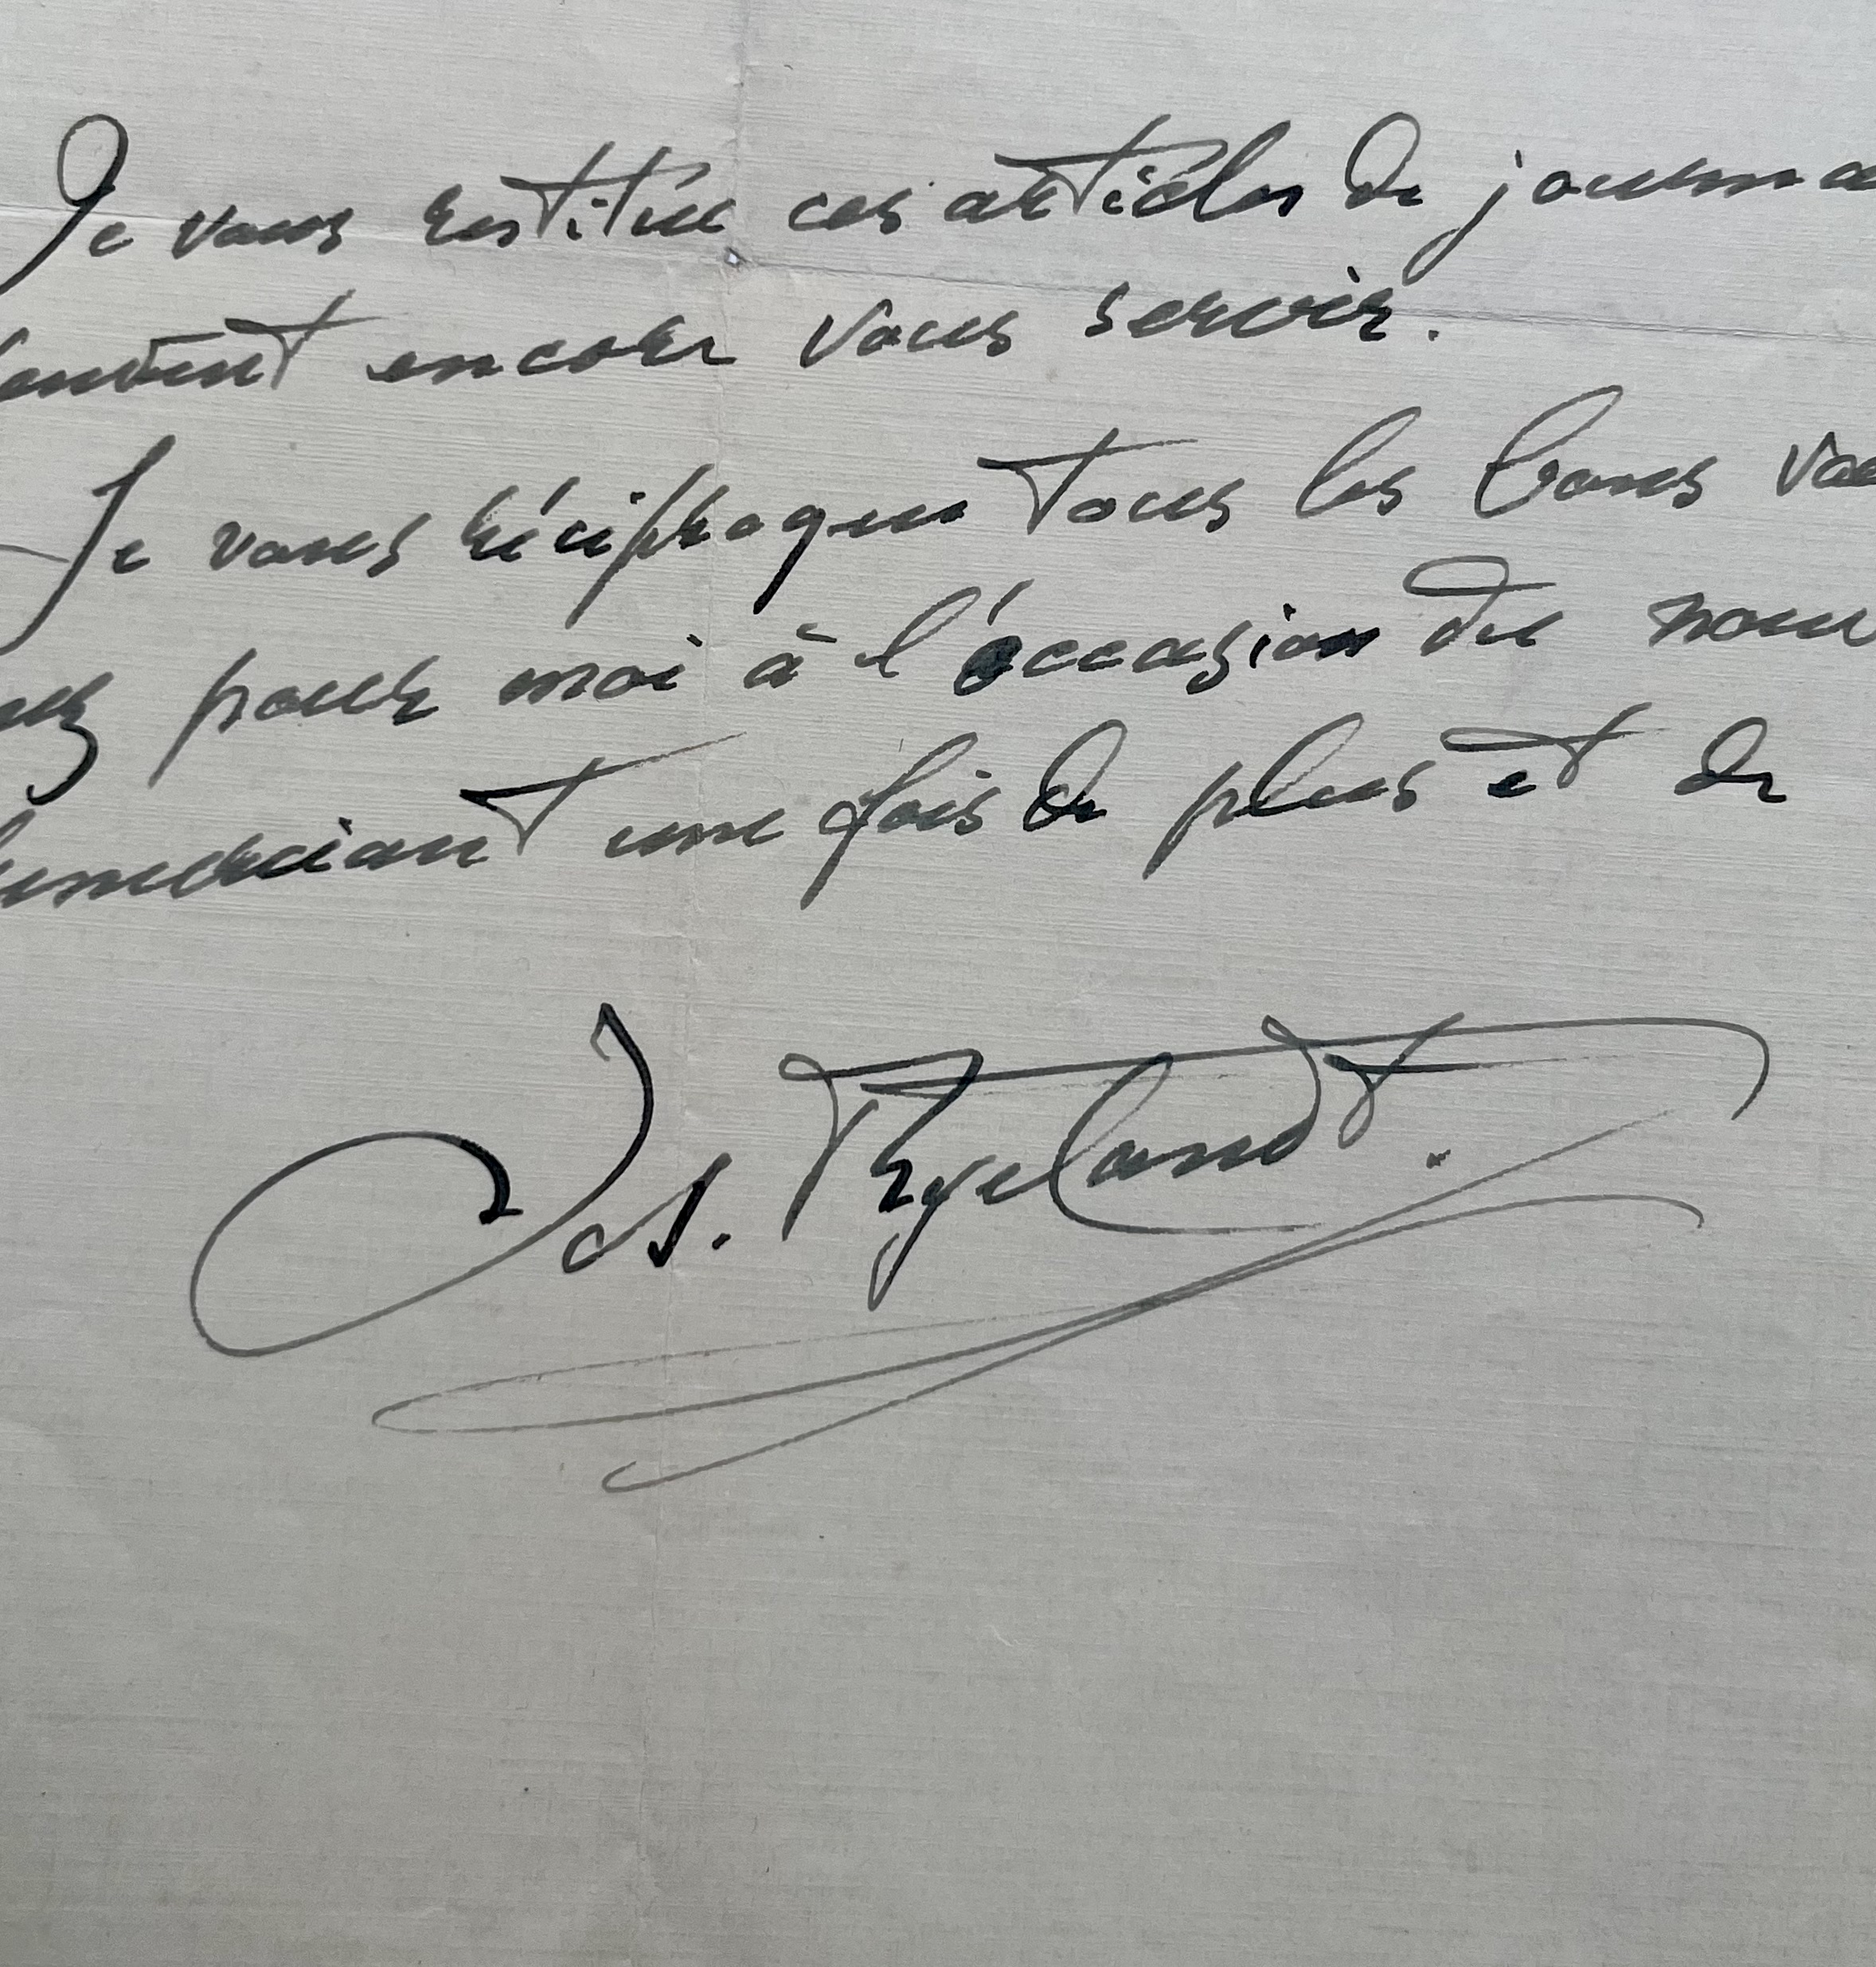 Je vous restitue ces articles de journa
peuvent encore vous servir.
Je vous réciproque tous les bons vœ
ez pour moi à l'occasion du nouv
remerciant une fois de plus et de
Jos. Ryelandt.